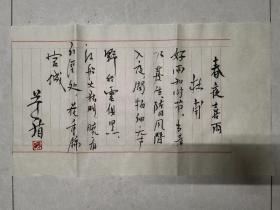 春夜喜雨
杜甫
好雨知时节当春
乃发生随风潜
入夜润物细无声
野径云俱黑
江船火独明晓看
红湿处花重锦
官城